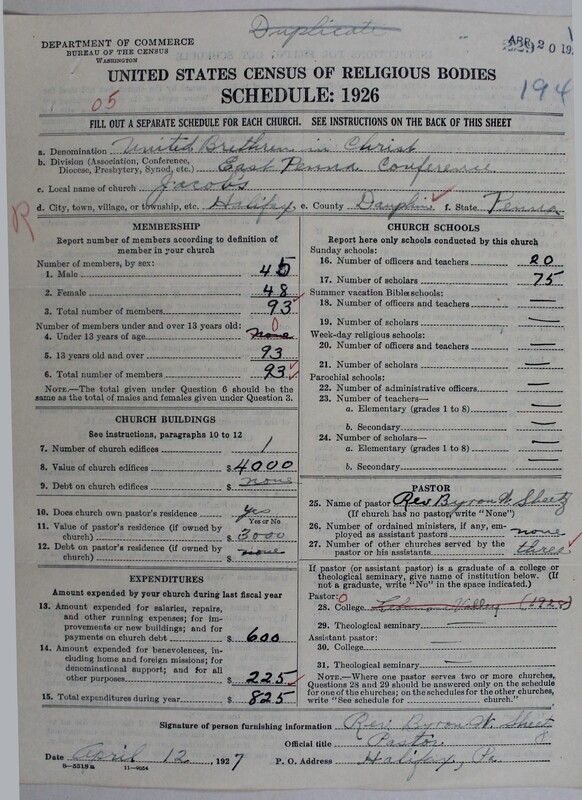 Duplicate
DEPARTMENT OF COMMERCE
BUREAU OF THE CENSUS
WASHINGTON
APR 20 19
194
UNITED STATES CENSUS OF RELIGIOUS BODIES
SCHEDULE: 1926
05
FILL OUT A SEPARATE SCHEDULE FOR EACH CHURCH. SEE INSTRUCTIONS ON THE BACK OF THIS SHEET
a. Denomination United Brethren in Christ
b. Division (Association, Conference, Diocese, Presbytery, Synod, etc.) East Penna Conference
c. Local name of church Jacobs
d. City, town, village, or township, etc. Halifax e. County Dauphin f. State Penna
R
MEMBERSHIP
Report number of members according to definition of
member in your church
Number of members, by sex:
1. Male 45
2. Female 48
3. Total number of members 93
Number of members under and over 13 years old:
4. Under 13 years of age none 0
5. 13 years old and over 93
6. Total number of members 93
NOTE.—The total given under Question 6 should be the
same as the total of males and females given under Question 3.
CHURCH BUILDINGS
See instructions, paragraphs 10 to 12
7. Number of church edifices 1
8. Value of church edifices $4000
9. Debt on church edifices none
10. Does church own pastor's residence yes
Yes or No
11. Value of pastor's residence (if owned by
church) $3000
12. Debt on pastor's residence (if owned by
church) $ none
EXPENDITURES
Amount expended by your church during last fiscal year
13. Amount expended for salaries, repairs,
and other running expenses; for im-
provements or new buildings; and for
payments on church debt $600
14. Amount expended for benevolences, in-
cluding home and foreign missions; for
denominational support; and for all
other purposes $225
15. Total expenditures during year $825
CHURCH SCHOOLS
Report here only schools conducted by this church
Sunday schools:
16. Number of officers and teachers 20
17. Number of scholars 75
Summer vacation Bible schools:
18. Number of officers and teachers —
19. Number of scholars —
Week-day religious schools:
20. Number of officers and teachers —
21. Number of scholars —
Parochial schools:
22. Number of administrative officers —
23. Number of teachers—
a. Elementary (grades 1 to 8) —
b. Secondary —
24. Number of scholars—
a. Elementary (grades 1 to 8) —
b. Secondary —
PASTOR
25. Name of pastor Rev Byron W. Sheetz
(If church has no pastor, write "None")
26. Number of ordained ministers, if any, em-
ployed as assistant pastors none
27. Number of other churches served by the
pastor or his assistants three
If pastor (or assistant pastor) is a graduate of a college or
theological seminary, give name of institution below. (If
not a graduate, write "No" in the space indicated.)
Pastor: 0
28. College Lebanon Valley
29. Theological seminary —
Assistant pastor:
30. College —
31. Theological seminary —
NOTE.—Where one pastor serves two or more churches,
Questions 28 and 29 should be answered only on the schedule
for one of the churches; on the schedules for the other churches,
write "See schedule for church."
Signature of person furnishing information Rev. Byron W. Sheetz
Official title Pastor
Date April 12, 1927 P. O. Address Halifax, Pa.
8—5518a 11—9554